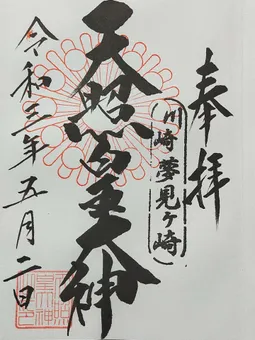 奉拝
（川崎 夢見ヶ崎）
天照皇大神
令和三年五月二日